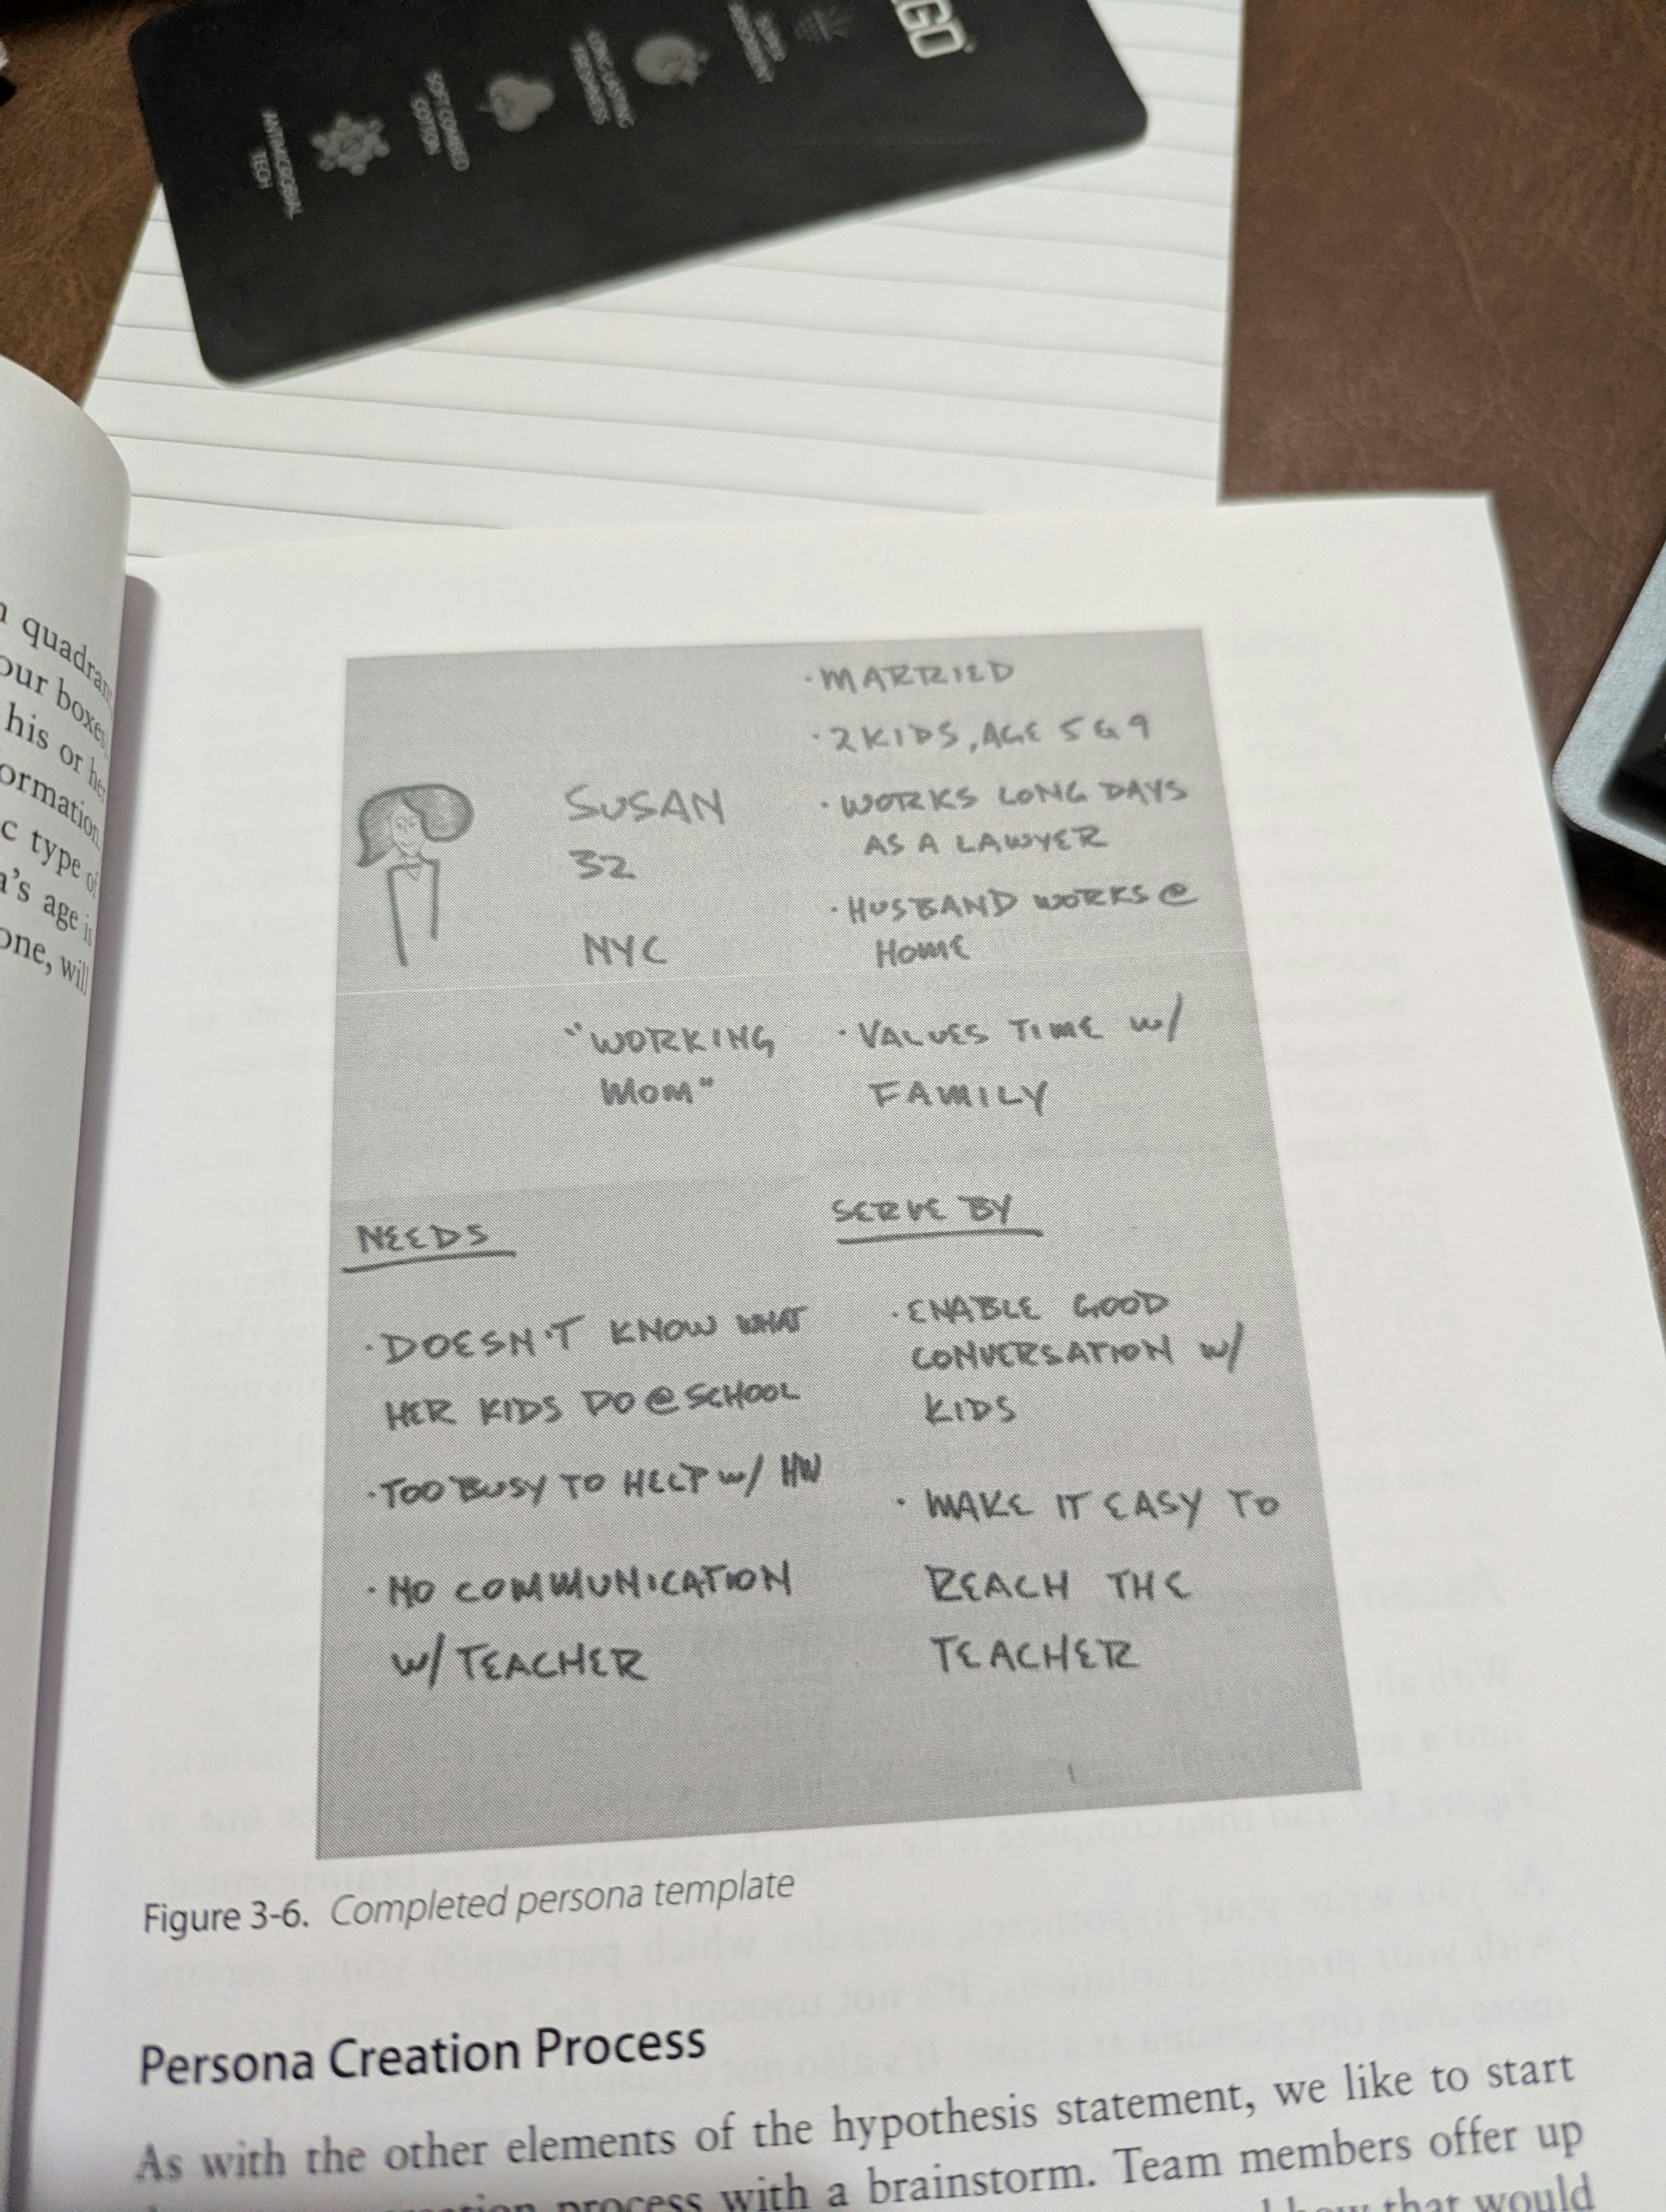 ANTIMICROBIAL
TECH
SOFT COMBED
COTTON
quadran
our boxes
his or he
ormation.
c type of
a's age is
one, will
SUSAN
32
NYC
"WORKING
MOM"
· MARRIED
· 2 KIDS, AGE 5 & 9
· WORKS LONG DAYS
AS A LAWYER
· HUSBAND WORKS @
HOME
· VALUES TIME W/
FAMILY
NEEDS
· DOESN'T KNOW WHAT
HER KIDS DO @ SCHOOL
· TOO BUSY TO HELP W/ HW
· NO COMMUNICATION
W/ TEACHER
SERVE BY
· ENABLE GOOD
CONVERSATION W/
KIDS
· MAKE IT EASY TO
REACH THE
TEACHER
Figure 3-6. Completed persona template
Persona Creation Process
As with the other elements of the hypothesis statement, we like to start
process with a brainstorm. Team members offer up
how that would